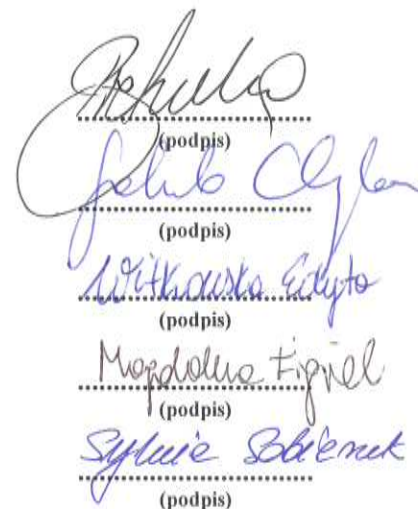 (podpis)
Jakub
(podpis)
Witkowska Edyta
(podpis)
Magdalena Figiel
(podpis)
Sylwia
(podpis)